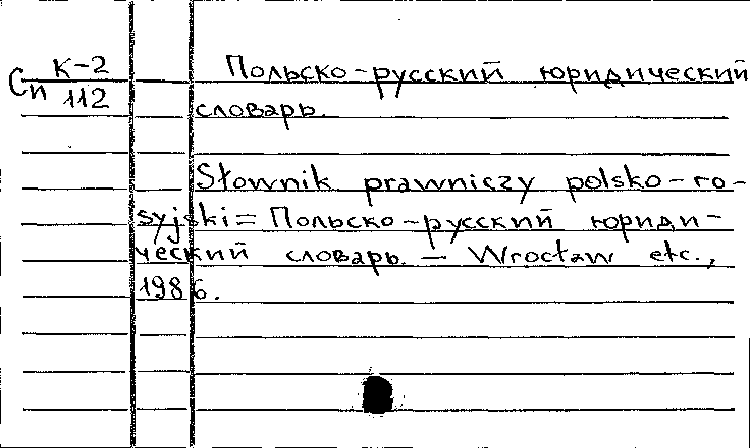 Сп К-2
112
Польско-русский юридический
словарь.
Słownik prawniczy polsko-ro-
syjski = Польско-русский юриди-
ческий словарь. — Wrocław etc.,
1986.